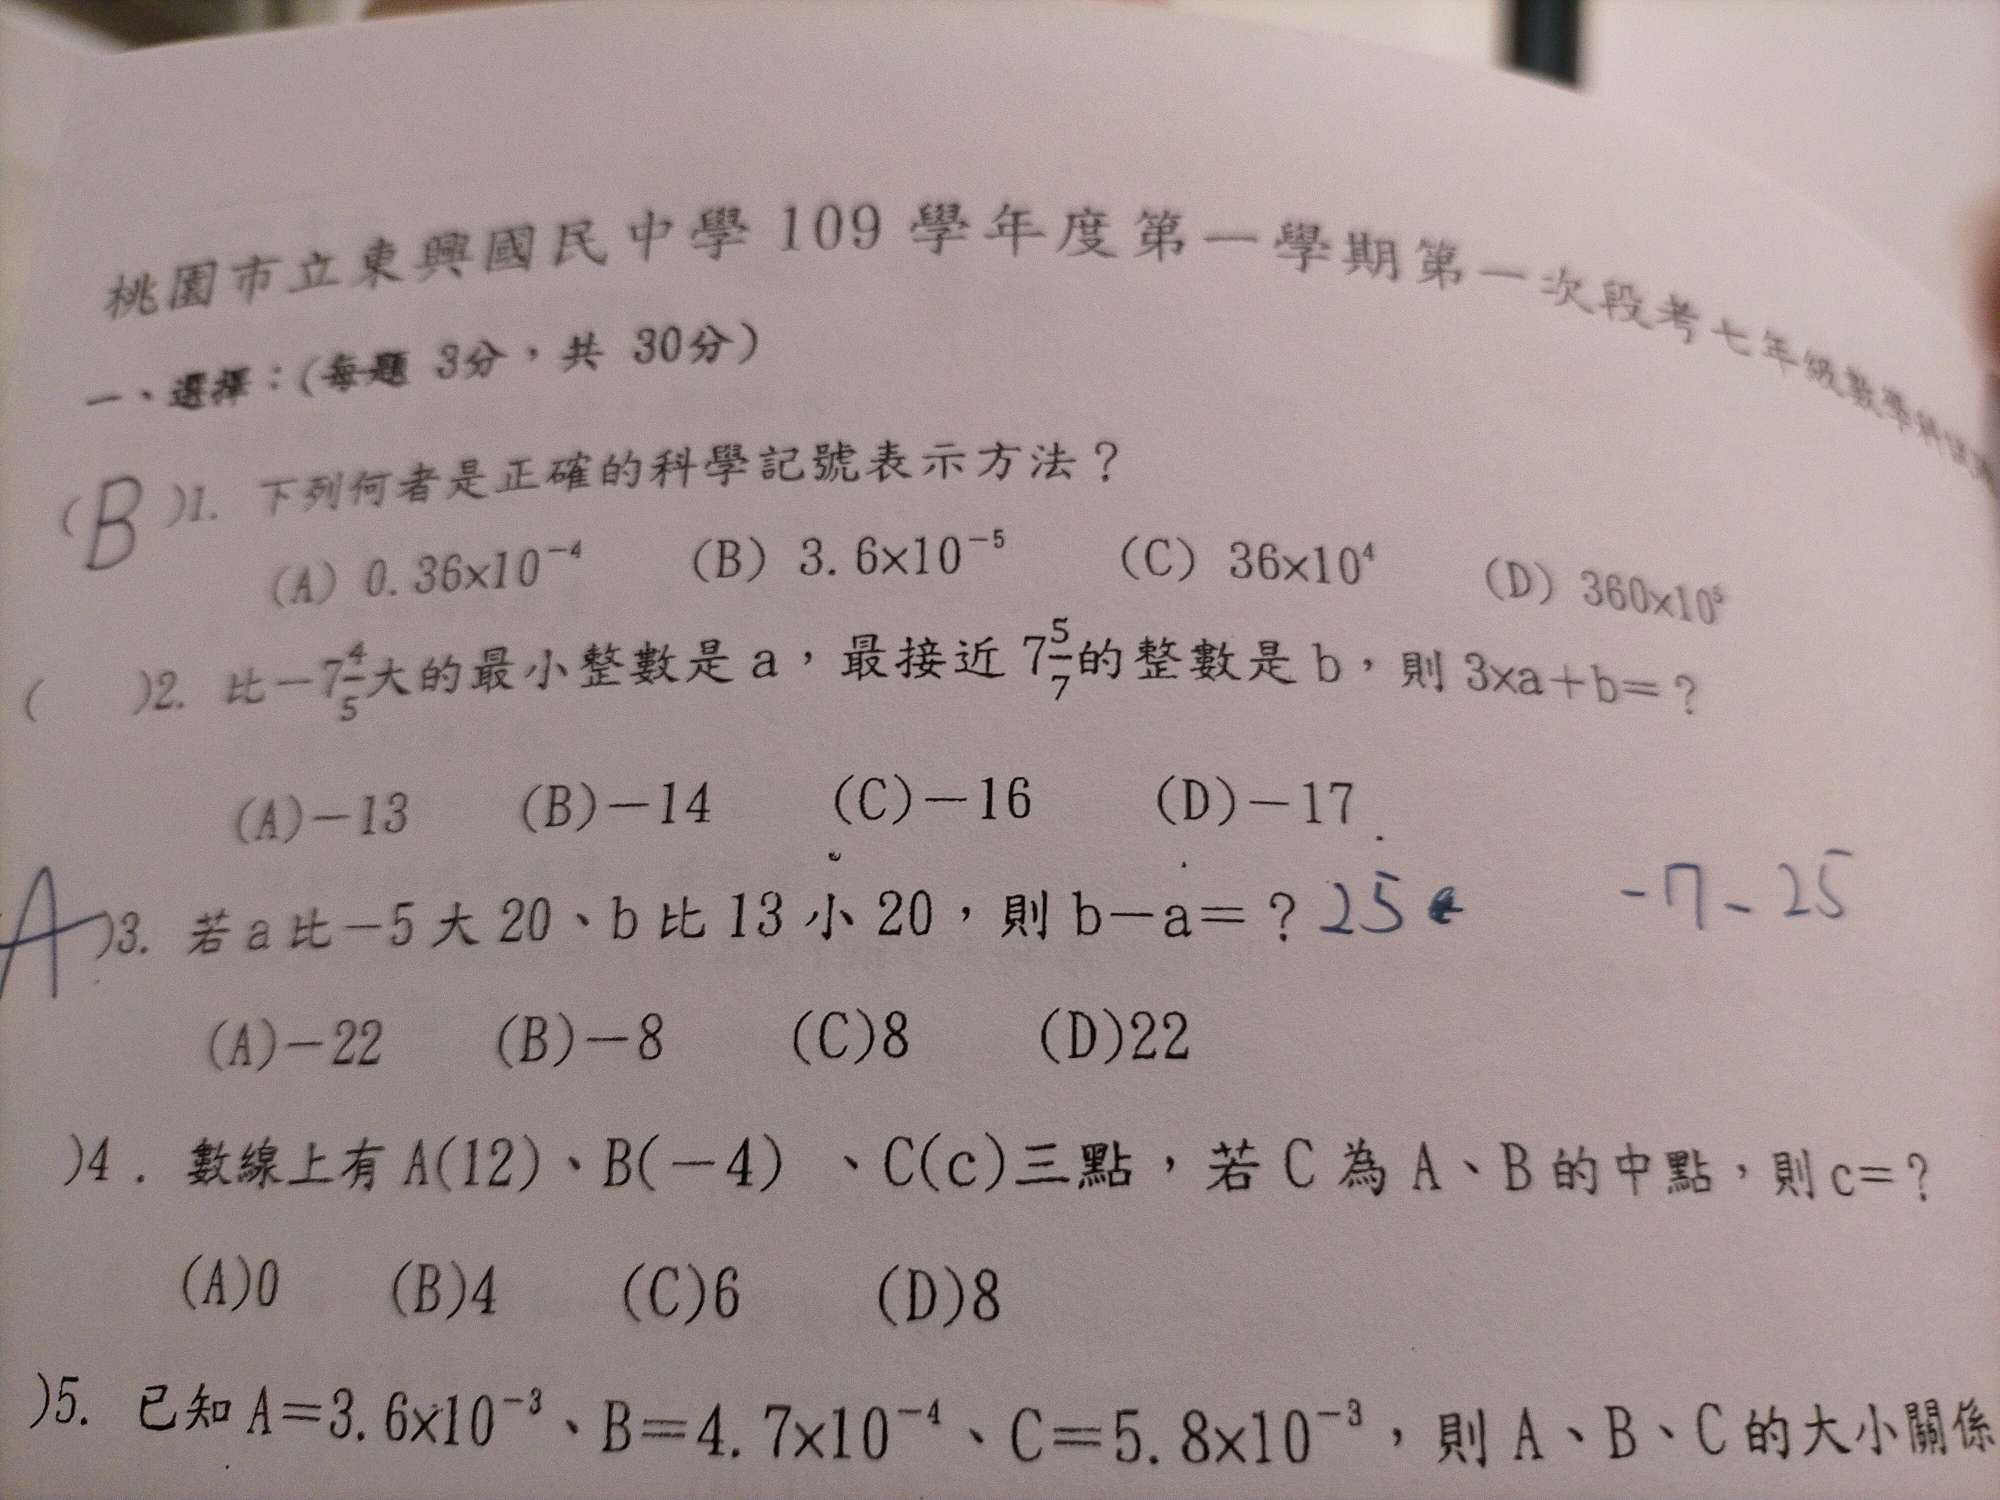 桃園市立東興國民中學 109 學年度第一學期第一次段考七年級數學
一、選擇：(每題 3分，共 30分)
(B)1. 下列何者是正確的科學記號表示方法？
(A) 0.36×10⁻⁴ (B) 3.6×10⁻⁵ (C) 36×10⁴ (D) 360×10⁵
( )2. 比－7 4/5 大的最小整數是 a，最接近 7 5/7 的整數是 b，則 3×a＋b＝？
(A)－13 (B)－14 (C)－16 (D)－17
A)3. 若 a 比－5 大 20、b 比 13 小 20，則 b－a＝？ 25 -7-25
(A)－22 (B)－8 (C)8 (D)22
)4. 數線上有 A(12)、B(－4)、C(c)三點，若 C 為 A、B 的中點，則 c＝？
(A)0 (B)4 (C)6 (D)8
)5. 已知 A＝3.6×10⁻³、B＝4.7×10⁻⁴、C＝5.8×10⁻³，則 A、B、C 的大小關係